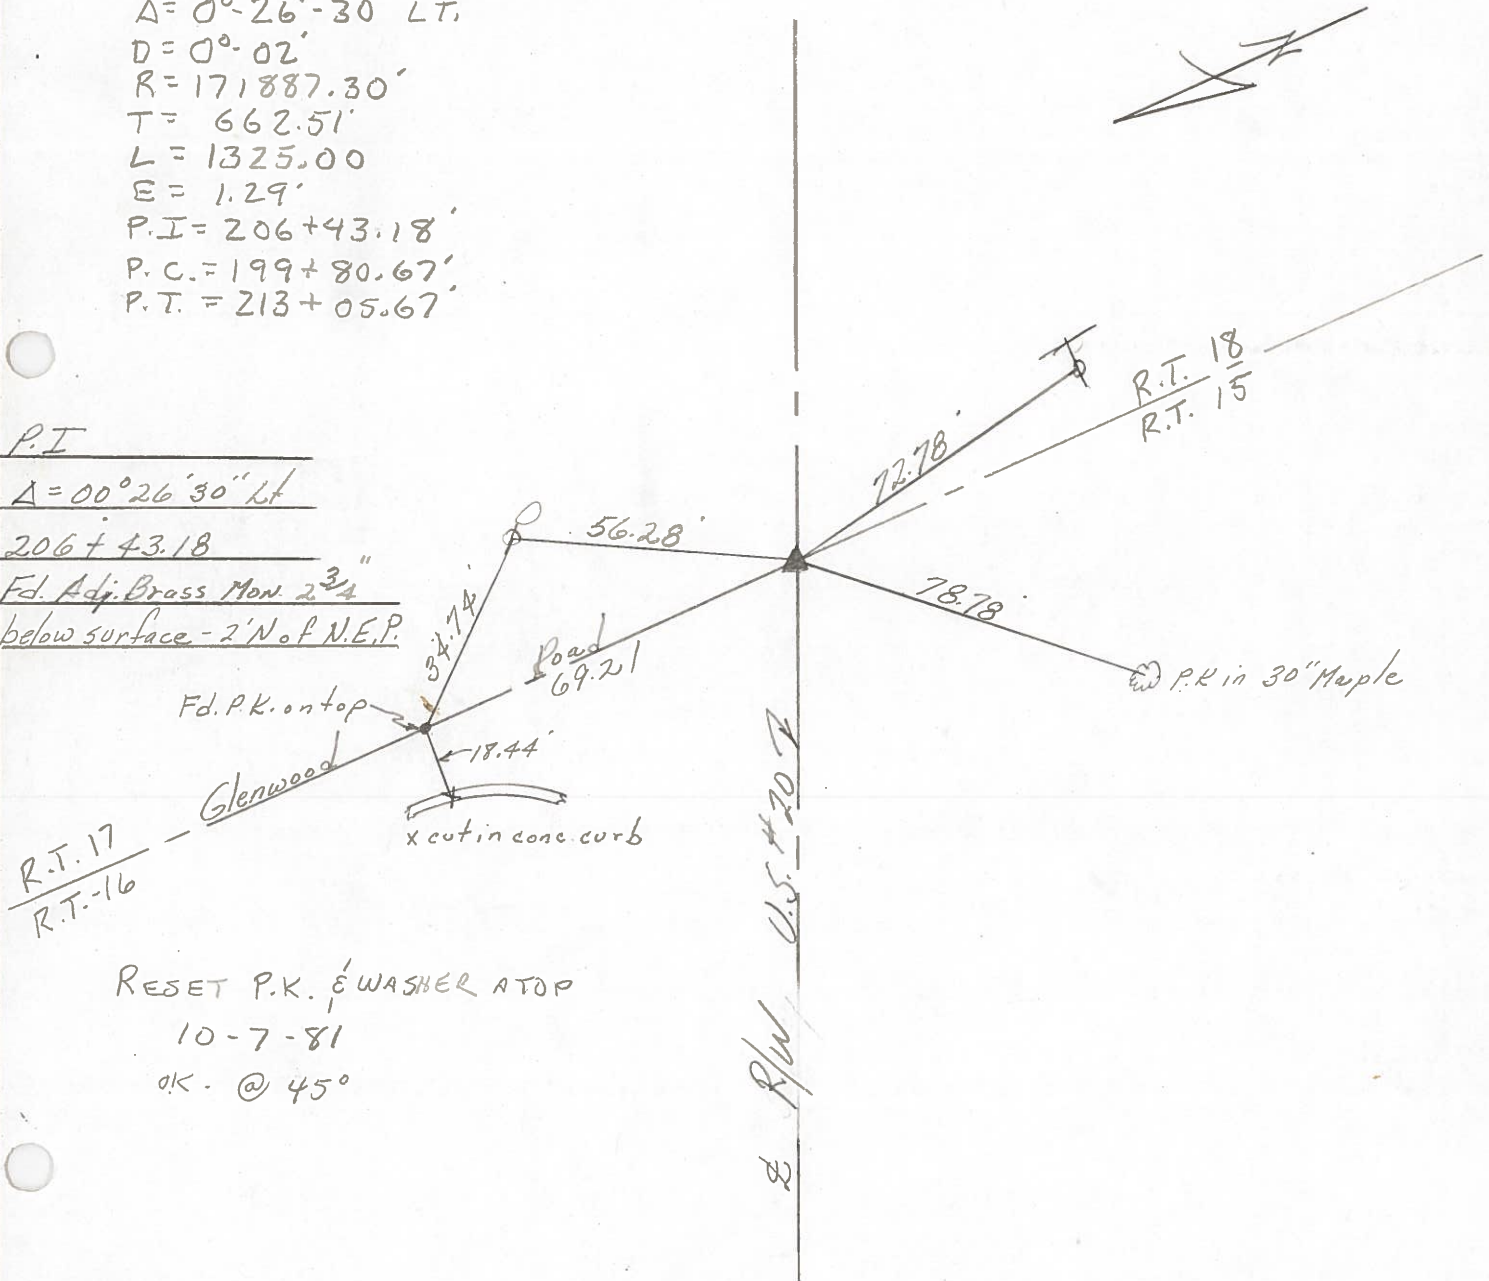 Δ= 0°-26'-30" LT.
D = 0°- 02'
R= 171887.30'
T= 662.51'
L = 1325.00
E = 1.29'
P.I= 206+43.18'
P.C.= 199+80.67'
P.T. = 213+05.67'
P.I
Δ=00°26'30" Lt
206+43.18
Fd. Adj. Brass Mon. 2 3/4"
below surface - 2'N of N.E.P.
R.T. 18
R.T. 15
72.78'
56.28'
78.78'
34.74'
Road
69.21
P.K in 30" Maple
Fd. P.K. on top
18.44'
Glenwood
x cut in conc. curb
R.T. 17
R.T.-16
U.S. # 20
R/W
℄
RESET P.K. & WASHER ATOP
10-7-81
OK. @ 45°